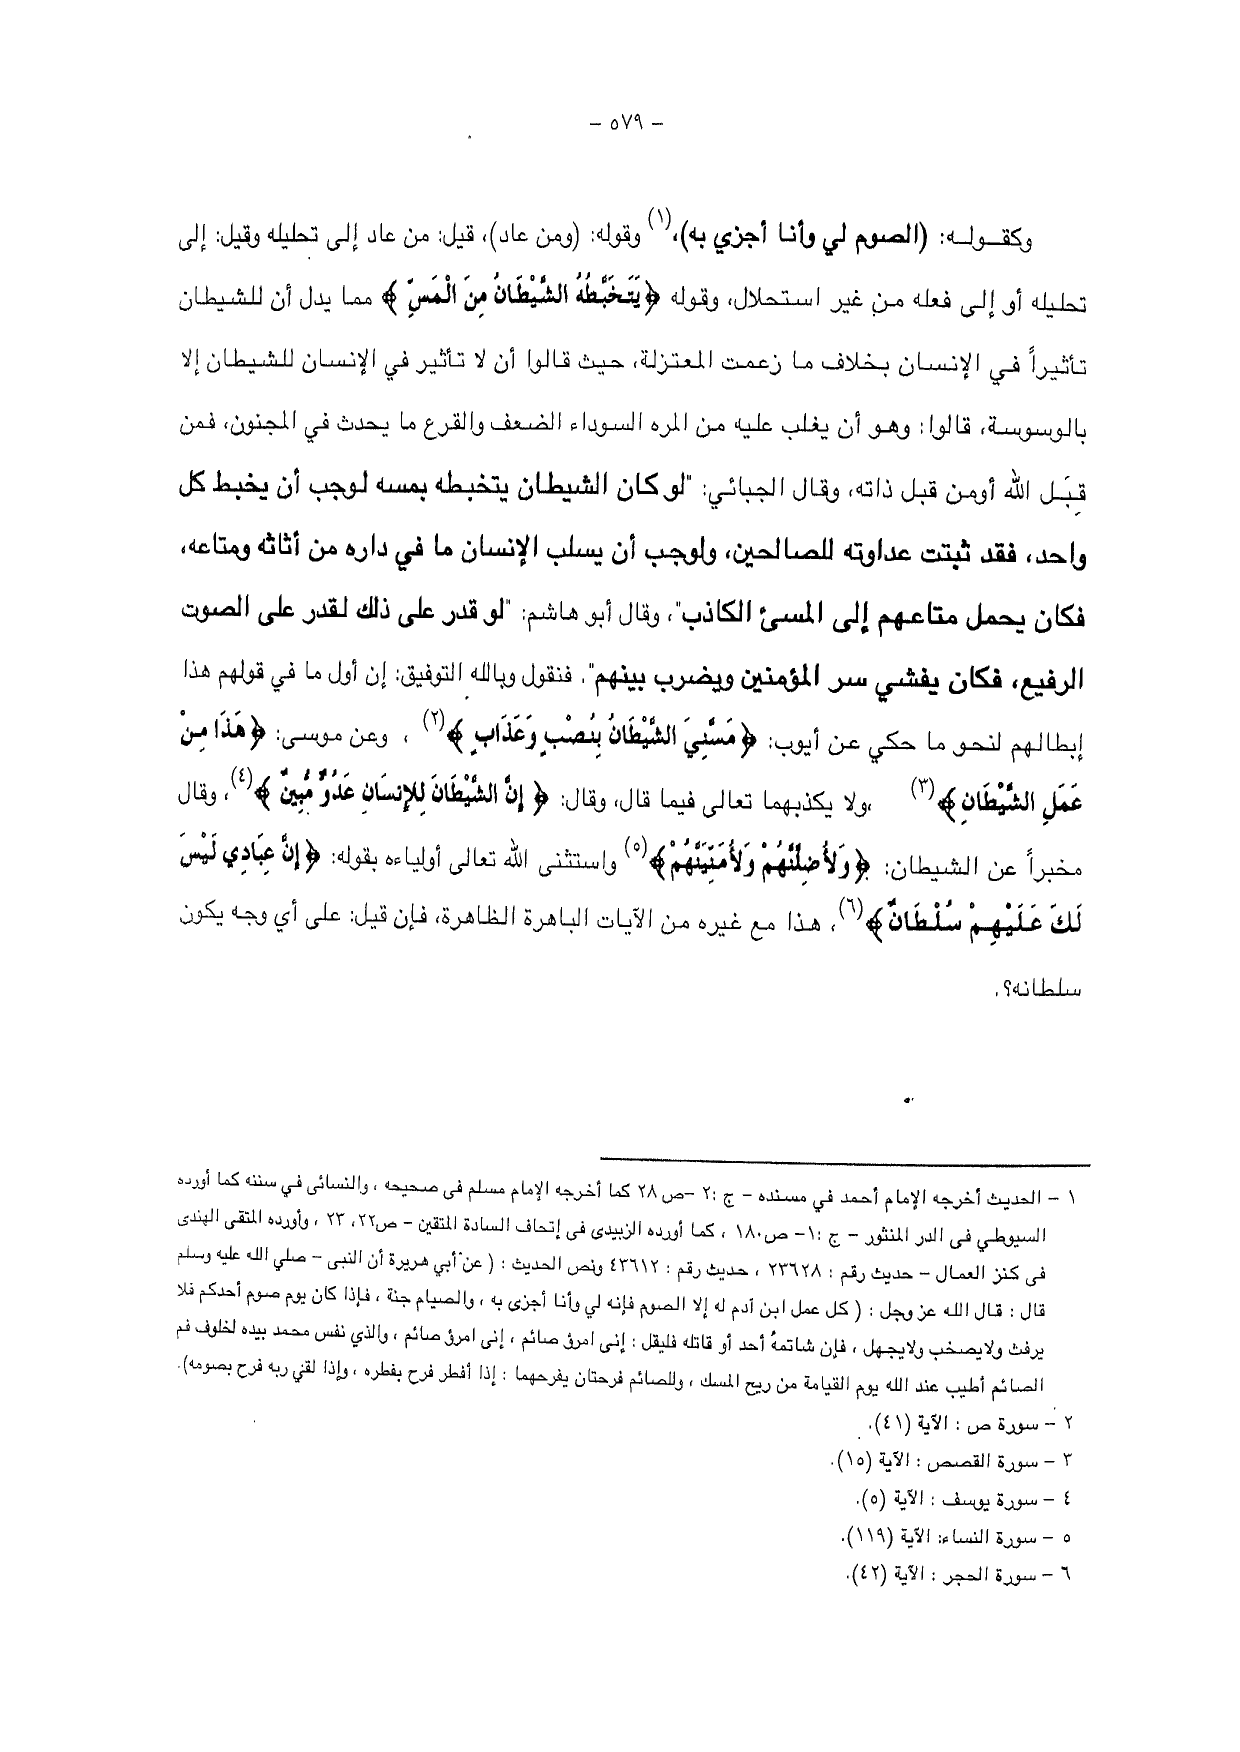 - ٥٧٩ -
وكقوله: (الصوم لي وأنا أجزي به)،(١) وقوله: (ومن عاد)، قيل: من عاد إلى تحليله وقيل: إلى
تحليله أو إلى فعله من غير استحلال، وقوله ﴿يَتَخَبَّطُهُ الشَّيْطَانُ مِنَ الْمَسِّ﴾ مما يدل أن للشيطان
تأثيراً في الإنسان بخلاف ما زعمت المعتزلة، حيث قالوا أن لا تأثير في الإنسان للشيطان إلا
بالوسوسة، قالوا: وهو أن يغلب عليه من المره السوداء الضعف والقرع ما يحدث في المجنون، فمن
قِبَل الله أومن قبل ذاته، وقال الجبائي: "لو كان الشيطان يتخبطه بمسه لوجب أن يخبط كل
واحد، فقد ثبتت عداوته للصالحين، ولوجب أن يسلب الإنسان ما في داره من أثاثه ومتاعه،
فكان يحمل متاعهم إلى المسئ الكاذب"، وقال أبو هاشم: "لو قدر على ذلك لقدر على الصوت
الرفيع، فكان يفشي سر المؤمنين ويضرب بينهم". فنقول وبالله التوفيق: إن أول ما في قولهم هذا
إبطالهم لنحو ما حكي عن أيوب: ﴿مَسَّنِيَ الشَّيْطَانُ بِنُصْبٍ وَعَذَابٍ﴾(٢) ، وعن موسى: ﴿هَذَا مِنْ
عَمَلِ الشَّيْطَانِ﴾(٣) ،ولا يكذبهما تعالى فيما قال، وقال: ﴿إِنَّ الشَّيْطَانَ لِلإِنسَانِ عَدُوٌّ مُّبِينٌ﴾(٤)، وقال
مخبراً عن الشيطان: ﴿وَلأُضِلَّنَّهُمْ وَلأُمَنِّيَنَّهُمْ﴾(٥) واستثنى الله تعالى أولياءه بقوله: ﴿إِنَّ عِبَادِي لَيْسَ
لَكَ عَلَيْهِمْ سُلْطَانٌ﴾(٦)، هذا مع غيره من الآيات الباهرة الظاهرة، فإن قيل: على أي وجه يكون
سلطانه؟.
١ - الحديث أخرجه الإمام أحمد في مسنده - ج :٢ -ص ٢٨ كما أخرجه الإمام مسلم فى صحيحه ، والنسائى في سننه كما أورده
السيوطي في الدر المنثور - ج :١- ص١٨٠ ، كما أورده الزبيدى فى إتحاف السادة المتقين - ص٢٢، ٢٣ ، وأورده المتقى الهندى
فى كنز العمال - حديث رقم : ٢٣٦٢٨ ، حديث رقم : ٤٣٦١٢ ونص الحديث : ( عن أبي هريرة أن النبى - صلي الله عليه وسلم
قال : قال الله عز وجل : ( كل عمل ابن آدم له إلا الصوم فإنه لي وأنا أجزى به ، والصيام جنة ، فإذا كان يوم صوم أحدكم فلا
يرفث ولايصخب ولايجهل ، فإن شاتمهُ أحد أو قاتله فليقل : إنى امرؤ صائم ، إنى امرؤ صائم ، والذي نفس محمد بيده لخلوف فم
الصائم أطيب عند الله يوم القيامة من ريح المسك ، وللصائم فرحتان يفرحهما : إذا أفطر فرح بفطره ، وإذا لقي ربه فرح بصومه).
٢ - سورة ص : الآية (٤١).
٣ - سورة القصص : الآية (١٥).
٤ - سورة يوسف : الآية (٥).
٥ - سورة النساء: الآية (١١٩).
٦ - سورة الحجر : الآية (٤٢).